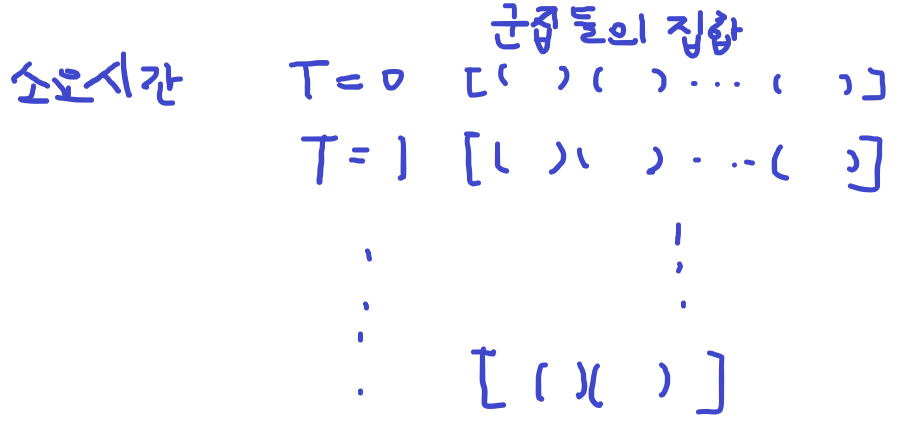 군집들의 집합
소요시간 T = 0 [( ) ( ) ... ( )]
T = 1 [( ) ( ) ... ( )]
[ ( )( ) ]